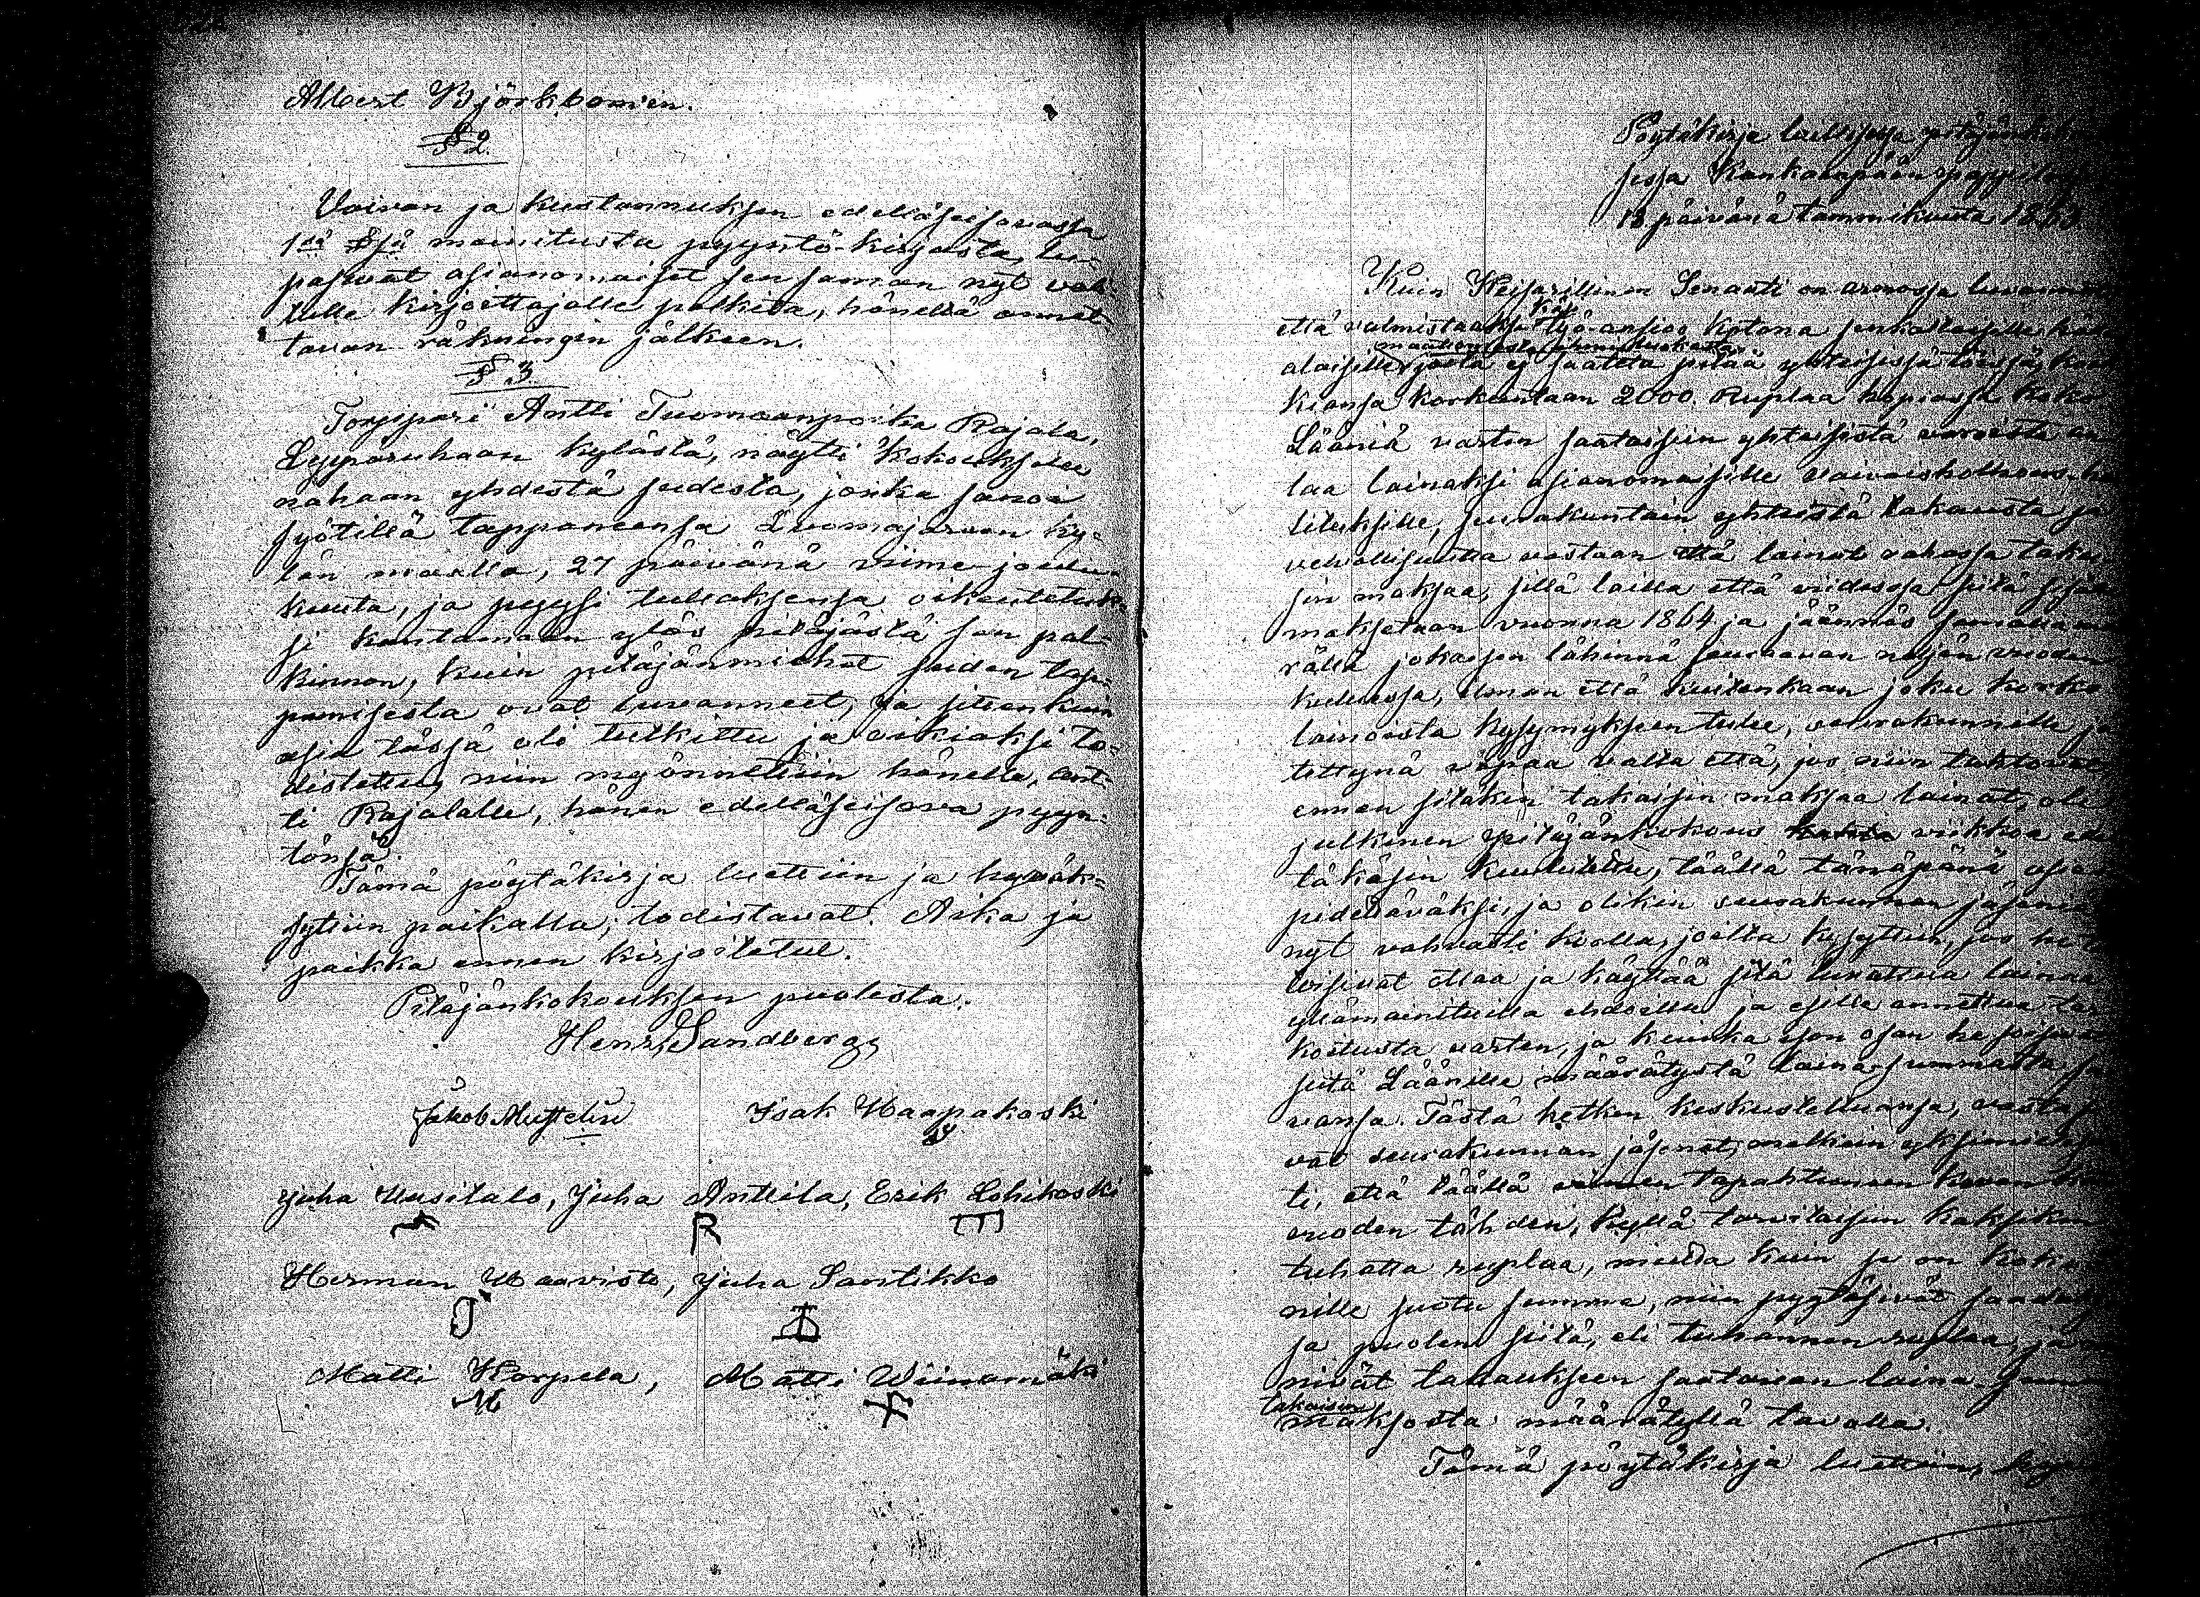 Albert Björkbomien.
§ 2.
Vaivan ja kustannuksen edelläseisovassa
1sä §sä mainitusta pyyntö-kirjasta, lu-
pasivat asianomaiset sen saman nyt val-
tulle kirjoittajalle palkita, häneltä annet-
tavan räkningin jälkeen.
§ 3.
Torppari Antti Tuomaanpoika Rajala,
Leppäruhaan kylästä, näytti Kokouksen
nahaan yhdestä sudesta, jonka sanoi
syötillä tappaneensa Luomajärven ky-
län maalla, 27 päivänä viime joulu-
kuuta, ja pyysi tullaksensa oikeutetuk-
si kantamaan ylös pitäjästä sen pal-
kinnon, kuin pitäjänmiehet suden tap-
pamisesta ovat luvanneet, ja sittenkuin
asia tässä oli tutkittu ja oikiaksi to-
distettu, niin myönnettiin hänelle, Ant-
ti Rajalalle, hänen edelläseisova pyyn-
tönsä.
Tämä pöytäkirja luettiin ja hyväk-
syttiin paikalla; todistavat. Aika ja
paikka ennen kirjoitetut.
Pitäjänkokouksen puolesta.
Henr. Sandberg
Jakob Myllelin Isak Haapakoski
Juha Uusitalo, Juha Anttila, Erik Lohikoski
R E
Herman Haavisto, Juha Santikko
Matti Korpela, Matti Wiinamäki
M
Pöytäkirja laillisessa pitäjänko
sessa Kankaanpään
13 päivänä tammikuuta 1863.
Kuin Keisarillinen Senaati on armossa luvannut
että valmistaaksi työ-ansioo kotona senkaltaisille
alaisille joita ei saateta pitää yhteisessä töissä,
kiansa korkeintaan 2000 Ruplaa hopiassa koko
Lääniä varten saataisiin yhteisistä varoista
laa lainaksi asianomaisille vaivaishoitous-
lituksille, seurakuntain yhteistä takausta ja
velvollisuutta vastaan että lainat rahassa taka
sin maksaa, sillä lailla että viidesosa siitä
maksetaan vuonna 1864 ja jäännös samalla
rällä jokaisen lähinnä seuraavan neljän vuoden
kuluessa, ilman että kuitenkaan joku korko
lainoista kysymykseen tulee, seurakunnille
tettynä vapaa valta että, jos niin tahtovat
ennen sitäkin takaisin maksaa lainat, oli
julkinen pitäjänkokous viikkoa
täkäsin kuulutettu, täällä tänäpänä
pidettäväksi, ja olikin seurakunnan jäseniä
nyt vahvasti koolla, joilta kysyttiin, jos he
toisivat ottaa ja käyttää sitä luvattua lainaa
yllämainituilla ehdoilla ja esille annettua
koitusta varten, ja kuinka ison osan he
siitä Läänille määrätystä laina-summasta
vansa. Tästä hetken keskusteltuansa, vasta
vat seurakunnan jäsenet melkein yksimielises
ti, että täällä viimen tapahtuneen kovan
vuoden tähden, kyllä tarvitaisiin kaksi
tuhatta ruplaa, mutta kuin se on koko
nille suotu summa, niin pyytäsivät saada
sa puolen siitä, eli tuhannen ruplaa, ja
nivät takaukseen saatavan laina-summ
takaisin
maksosta määrätyllä tavalla.
Tämä pöytäkirja luettiin,